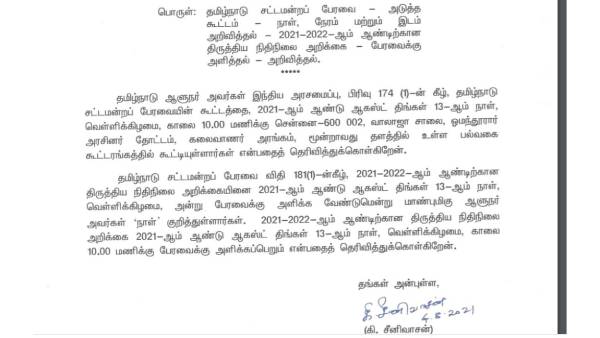 பொருள்: தமிழ்நாடு சட்டமன்றப் பேரவை – அடுத்த
கூட்டம் – நாள், நேரம் மற்றும் இடம்
அறிவித்தல் – 2021–2022–ஆம் ஆண்டிற்கான
திருத்திய நிதிநிலை அறிக்கை – பேரவைக்கு
அளித்தல் – அறிவித்தல்.
*****
தமிழ்நாடு ஆளுநர் அவர்கள் இந்திய அரசமைப்பு, பிரிவு 174 (1)–ன் கீழ், தமிழ்நாடு
சட்டமன்றப் பேரவையின் கூட்டத்தை, 2021–ஆம் ஆண்டு ஆகஸ்ட் திங்கள் 13–ஆம் நாள்,
வெள்ளிக்கிழமை, காலை 10.00 மணிக்கு சென்னை–600 002, வாலாஜா சாலை, ஒமந்தூரார்
அரசினர் தோட்டம், கலைவாணர் அரங்கம், மூன்றாவது தளத்தில் உள்ள பல்வகை
கூட்டரங்கத்தில் கூட்டியுள்ளார்கள் என்பதைத் தெரிவித்துக்கொள்கிறேன்.
தமிழ்நாடு சட்டமன்றப் பேரவை விதி 181(1)–ன்கீழ், 2021–2022–ஆம் ஆண்டிற்கான
திருத்திய நிதிநிலை அறிக்கையினை 2021–ஆம் ஆண்டு ஆகஸ்ட் திங்கள் 13–ஆம் நாள்,
வெள்ளிக்கிழமை, அன்று பேரவைக்கு அளிக்க வேண்டுமென்று மாண்புமிகு ஆளுநர்
அவர்கள் 'நாள்' குறித்துள்ளார்கள். 2021–2022–ஆம் ஆண்டிற்கான திருத்திய நிதிநிலை
அறிக்கை 2021–ஆம் ஆண்டு ஆகஸ்ட் திங்கள் 13–ஆம் நாள், வெள்ளிக்கிழமை, காலை
10.00 மணிக்கு பேரவைக்கு அளிக்கப்பெறும் என்பதைத் தெரிவித்துக்கொள்கிறேன்.
தங்கள் அன்புள்ள,
கி.சீனிவாசன்
4.8.2021
(கி. சீனிவாசன்)